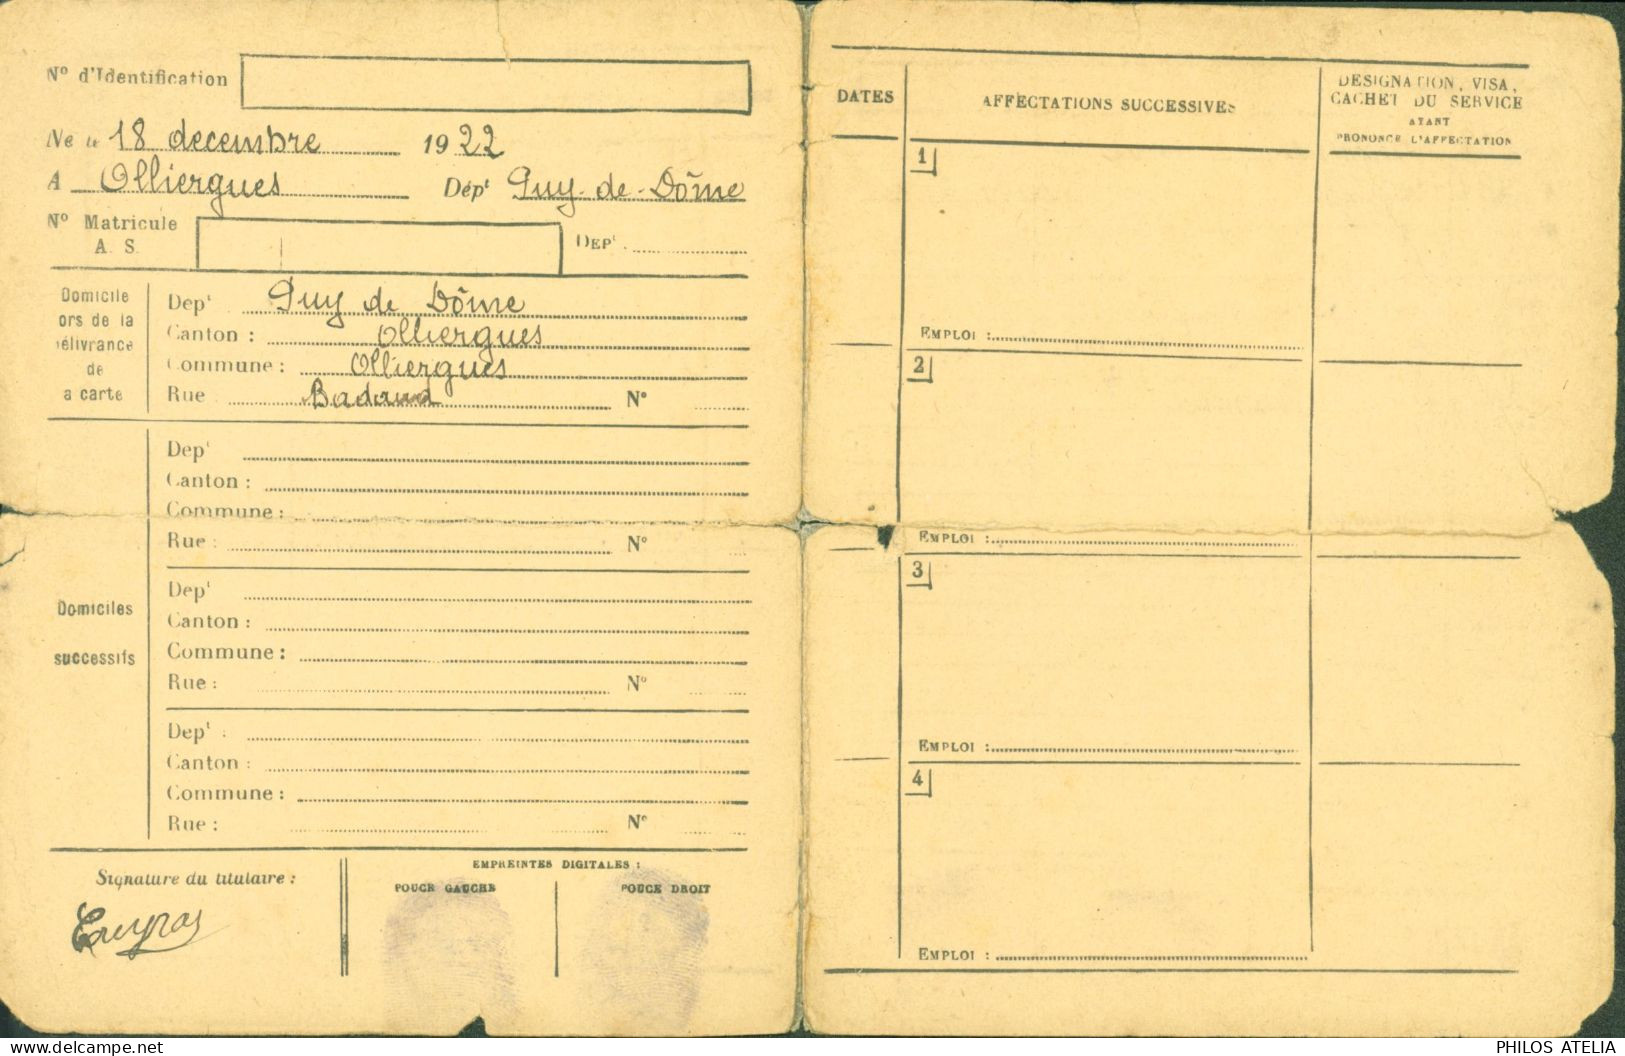 N° d'Identification
Né le 18 decembre 1922
A Olliergues Dépt Puy-de-Dôme
N° Matricule
A. S. DEPt.
Domicile
ors de la
délivrance
de
a carte
Dept Puy de Dôme
Canton : Olliergues
Commune : Olliergues
Rue Badaud N°
Domiciles
successifs
Dept
Canton :
Commune :
Rue : N°
Dept
Canton :
Commune :
Rue : N°
Dept :
Canton :
Commune :
Rue : N°
Signature du titulaire :
EMPREINTES DIGITALES :
POUCE GAUCHE POUCE DROIT
DATES
AFFECTATIONS SUCCESSIVES
DESIGNATION, VISA,
CACHET DU SERVICE
AYANT
PRONONCE L'AFFECTATION
1
EMPLOI :
2
EMPLOI :
3
EMPLOI :
4
EMPLOI :
https://www.delcampe.net
PHILOS ATELIA